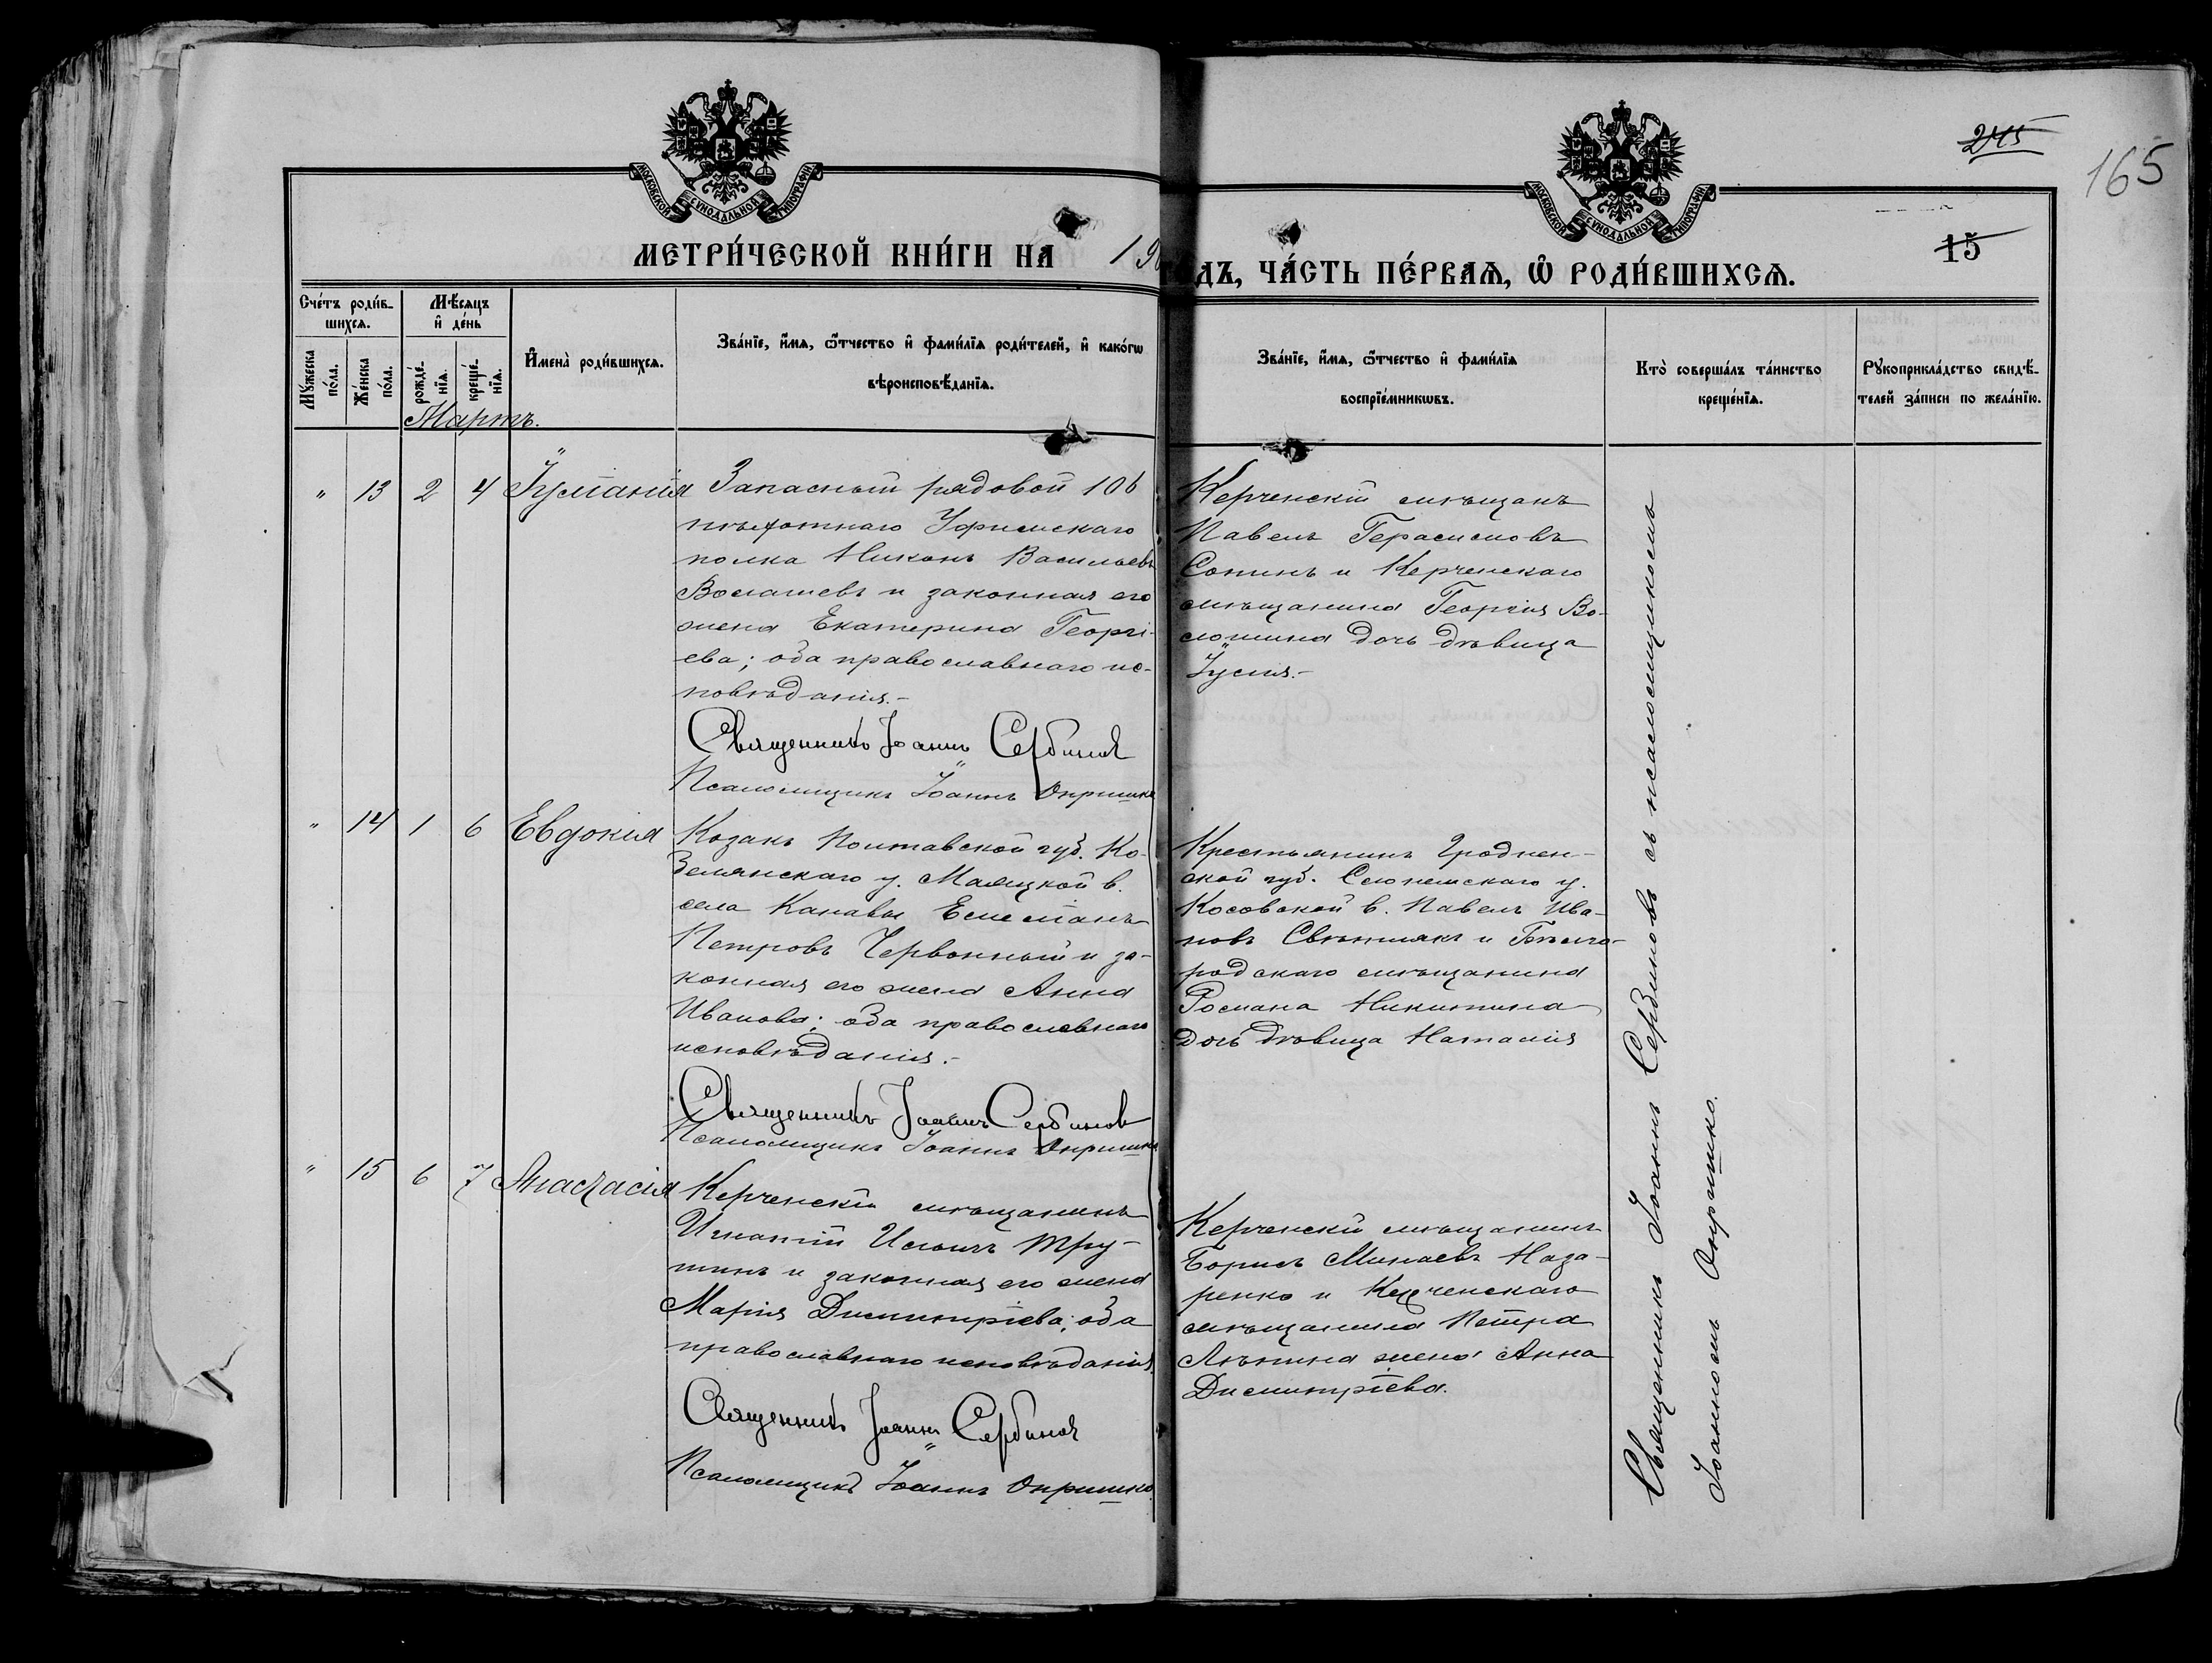 245
165
15
МОСКОВСКОЙ СУНОДАЛЬНОЙ ТИПОГРАФІИ
МОСКОВСКОЙ СУНОДАЛЬНОЙ ТИПОГРАФІИ
МЕТРИ́ЧЕСКОЙ КНИ́ГИ НА 19
ГО́ДЪ, ЧА́СТЬ ПЕ́РВАѦ, Ѡ҆ РОДИ́ВШИХСѦ.
Сче́тъ роди́в-
шихсѧ.
Мꙋ́жеска по́ла.
Же́нска по́ла.
Мѣ́сѧцъ
и҆ де́нь
рожде́-
нїѧ.
креще́-
нїѧ.
И҆мена̀ роди́вшихсѧ.
Зва́нїе, и҆́мѧ, ѻ҆́тчество и҆ фами́лїѧ роди́телей, и҆ како́гѡ
вѣроисповѣ́данїѧ.
Зва́нїе, и҆́мѧ, ѻ҆́тчество и҆ фами́лїѧ
воспрїе́мникѡвъ.
Кто̀ соверша́лъ та́инство
креще́нїѧ.
Рꙋкоприкла́дство свидѣ́-
телей за́писи по жела́нїю.
Мартъ.
" 13 2 4 Іуліанія
Запасный рядовой 106
пѣхотнаго Уфимскаго
полка Никонъ Васильевъ
и законная его
жена Екатерина Георгі-
ева; оба православнаго ис-
повѣданія.-
Священникъ Іоаннъ Сербиновъ
Псаломщикъ Іоаннъ Опришко
Керченскій мѣщанъ
Павелъ Герасимовъ
Сопинъ и Керченскаго
мѣщанина Георгія Во-
лошина дочь дѣвица
Іулія.-
" 14 1 6 Евдокія
Козакъ Полтавской губ. Ко-
белянскаго у. Маячкой в.
села Канавы Емеліанъ
Петровъ Червонный и за-
конная его жена Анна
Иванова; оба православнаго
исповѣданія.-
Священникъ Іоаннъ Сербиновъ
Псаломщикъ Іоаннъ Опришко
Крестьянинъ Гроднен-
ской губ. Слонемскаго у.
Косовской в. Павелъ Ива-
новъ и Бѣлго-
родскаго мѣщанина
Романа Никитина
дочь дѣвица Наталія
" 15 6 7 Анастасія
Керченскій мѣщанинъ
Игнатій Ильичъ Тру-
шинъ и законная его жена
Марія Димитріева; оба
православнаго исповѣданія.
Священникъ Іоаннъ Сербиновъ
Псаломщикъ Іоаннъ Опришко.
Керченскій мѣщанинъ
Борисъ Минаевъ Наза-
ренко и Керченскаго
мѣщанина Петра
жена Анна
Димитріева.
Священникъ Іоаннъ Сербиновъ съ псаломщикомъ
Іоанномъ Опришко.